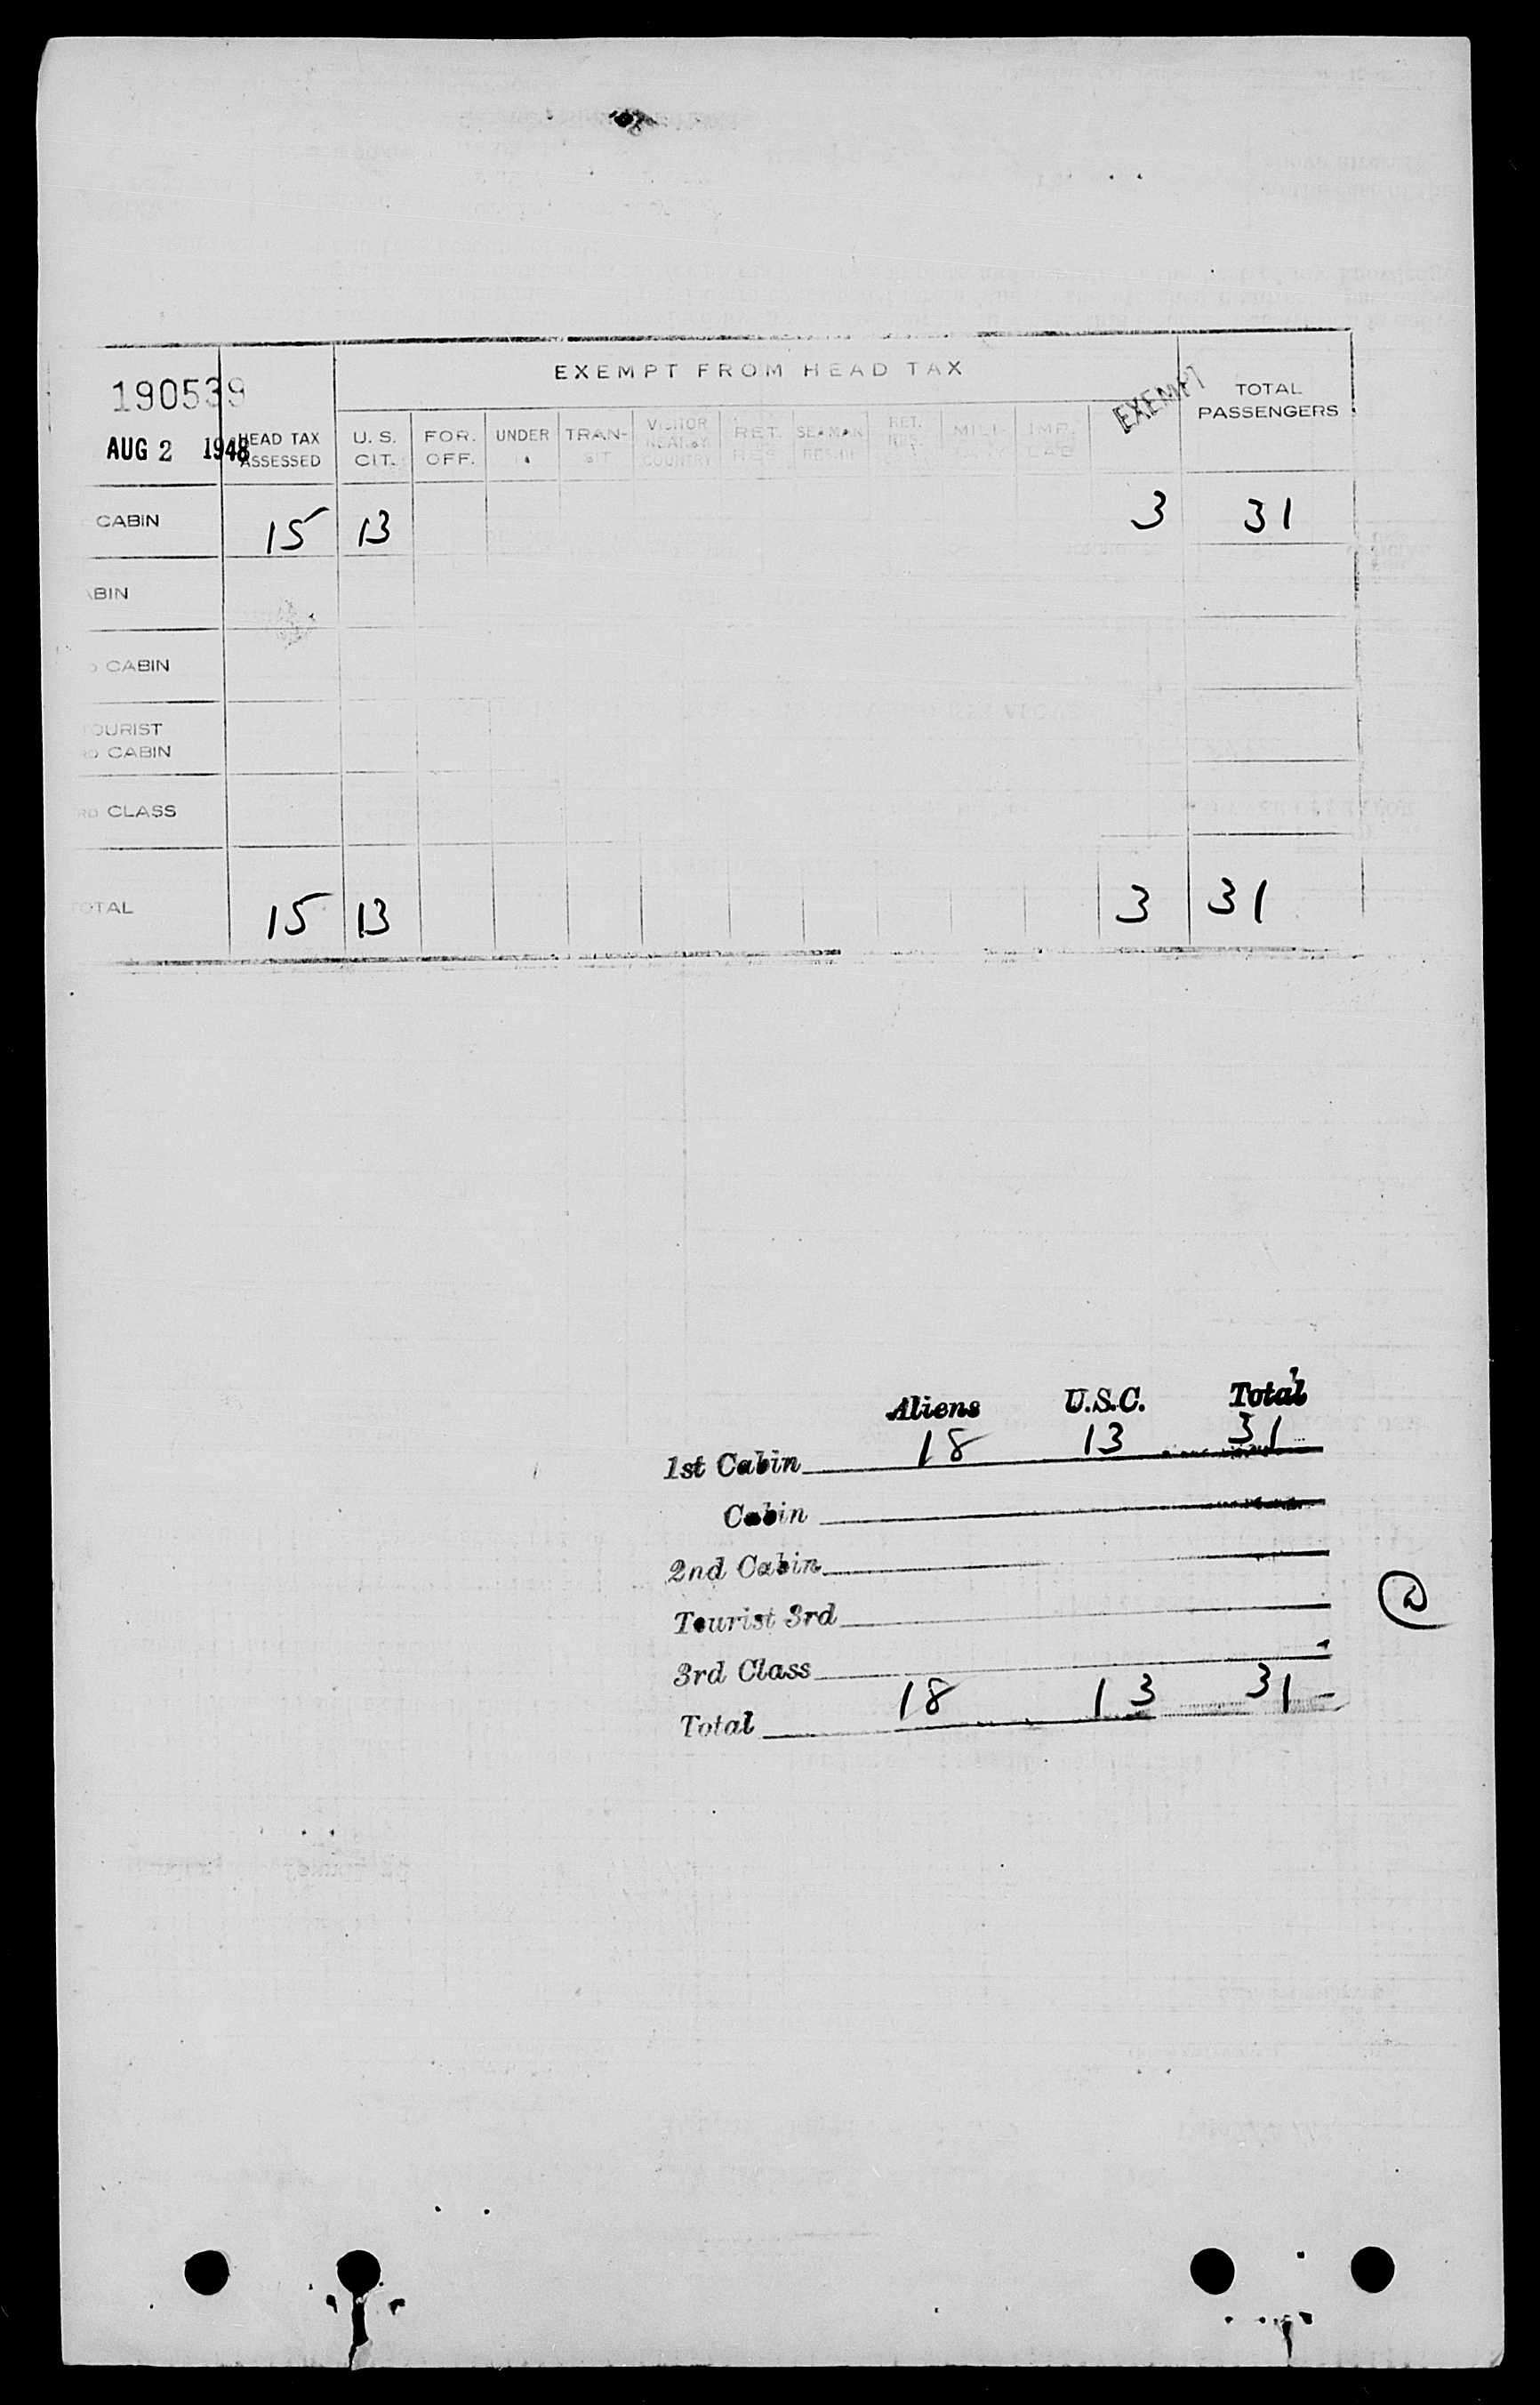 EXEMPT FROM HEAD TAX
190539
EXEMPT
TOTAL
PASSENGERS
AUG 2 1948
HEAD TAX
ASSESSED
U. S.
CIT.
FOR.
OFF.
UNDER
TRAN-
SIT
VISITOR
NEARBY
COUNTRY
RET.
RES
SEAMAN
RET.
RES.
MILI-
IMP.
LAB
CABIN 15 13 3 31
ABIN
D CABIN
TOURIST
RD CABIN
RD CLASS
TOTAL 15 13 3 31
Aliens U.S.C. Total
1st Cabin 18 13 31
Cabin
2nd Cabin
Tourist 3rd
3rd Class
Total 18 13 31